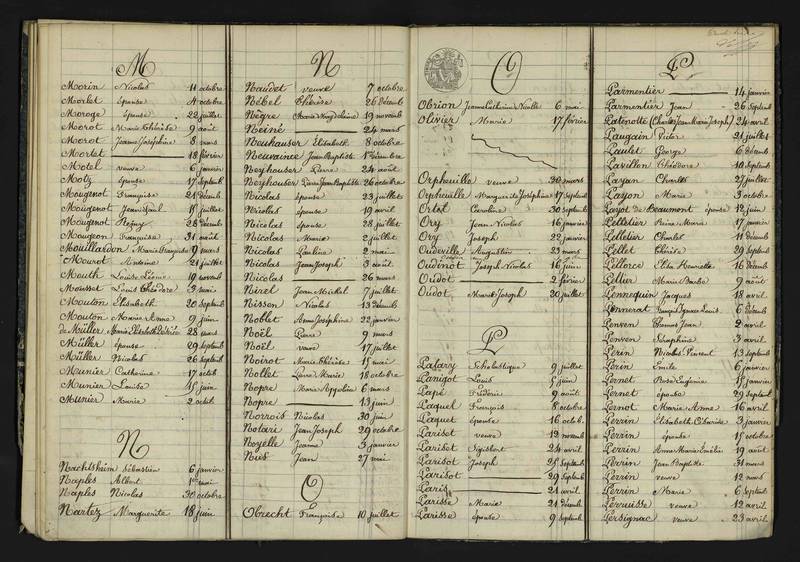 M
Morin Nicolas 11 octobre
Morlet épouse 4 octobre
Moroge épouse 22 juillet
Morot Marie Thérèse 9 août
Morot Jeanne Joséphine 8 mars
Mortet 18 février
Motel veuve 6 janvier
Motz épouse 17 septemb
Mougenot Françoise 21 décemb
Mougenot Jean Paul 15 juillet
Mougenot Rémy 28 décemb
Mougeon Françoise 31 août
Mouillardon Marie Françoise 9 mars
Mourot Antoine 21 juillet
Mouth Louise 19 novemb
Mousset Louis Théodore 3 mai
Mouton Elisabeth 20 septemb
Mouton Marie Anne 9 juin
de Müller Marie Elisabeth 28 mars
Müller épouse 29 septemb
Müller Nicolas 26 septemb
Munier Catherine 17 octob
Munier Louise 15 juin
Munier Marie 2 octob
N
Nachtsheim Sébastien 6 janvier
Naples Albert 1er mai
Naples Nicolas 30 octobre
Nartez Marguerite 18 juin
N
Naudet veuve 7 octobre
Nébel Thérèse 26 décemb
Nègre Marie Magdeleine 19 novemb
Neiné 24 mars
Neuhauser Elisabeth 8 octobre
Neuvaine Jean Baptiste 1er décemb
Neyhouser Pierre 24 août
Neyhouser Pierre Jean Baptiste 26 octobre
Nicolas épouse 23 juillet
Nicolas épouse 19 avril
Nicolas épouse 28 juillet
Nicolas Marie 2 juillet
Nicolas Pauline 2 mai
Nicolas Jean Joseph 3 août
Nicolas 26 mars
Nirel Jean Michel 7 juillet
Nisson Nicolas 13 décemb
Noblet Anne Joséphine 22 janvier
Noël Pierre 9 mars
Noël veuve 17 juillet
Noirot Marie Thérèse 15 mai
Nollet Pierre Marie 18 octobre
Nopre Marie Appoline 6 mars
Nopre 13 juin
Norrois Nicolas 30 juin
Notari Jean Joseph 29 octobre
Noyelle Jeanne 5 janvier
Nus Jean 27 mai
O
Obrecht Françoise 10 juillet
O
Obrion Jeanne Catherine 6 mai
Olivier Marie 17 février
Orpheuille veuve 30 mars
Orpheuille Marguerite Joséphine 17 septemb
Ortel Caroline 30 septemb
Ory Jean Nicolas 16 janvier
Ory Joseph 22 janvier
Oudeville Augustin 23 mars
Oudinot Joseph Nicolas 16 juin
Oudot 2 février
Oudot Marie Joseph 20 juillet
P
Palary Scholastique 9 juillet
Panigot Louis 5 juin
Papé Frédéric 9 août
Paquel François 8 octobre
Paquet épouse 16 octob.
Parisot veuve 12 novemb
Parisot Sigisbert 24 avril
Parisot Joseph 25 septemb
Parisot 29 septemb
Paris 21 avril
Parisse Marie 21 décemb
Parisse épouse 9 septemb
P
Parmentier 14 janvier
Parmentier Jean 26 septemb
Patinotte (Charles Jean Marie Joseph) 24 avril
Paugain Victor 21 juillet
Paulet George 6 décemb
Pavillon Théodore 10 septemb
Payan Charles 27 juillet
Payon Marie 3 octobre
Payot de Beaumont épouse 12 juin
Pelletier Marie 17 janvier
Pelletier Charles 11 décemb
Pellet Thérèse 29 septemb
Pellorce Henriette 16 décemb
Pellier Marie Barbe 9 août
Pennequin Jacques 18 avril
Pennerat Louis 6 décemb
Penven Thomas Jean 2 avril
Penven Séraphine 3 avril
Perin Nicolas Vincent 13 septemb
Perin Emile 6 janvier
Pernet Rose Eugénie 15 janvier
Pernet épouse 29 septemb
Pernot Marie Anne 16 avril
Perrin Elisabeth 3 janvier
Perrin épouse 15 octobre
Perrin Anne Marie Émélie 19 août
Perrin Jean Baptiste 31 mars
Perrin veuve 12 mars
Perrin Marie 6 septemb
Perruisse veuve 12 avril
Persignac veuve 23 avril